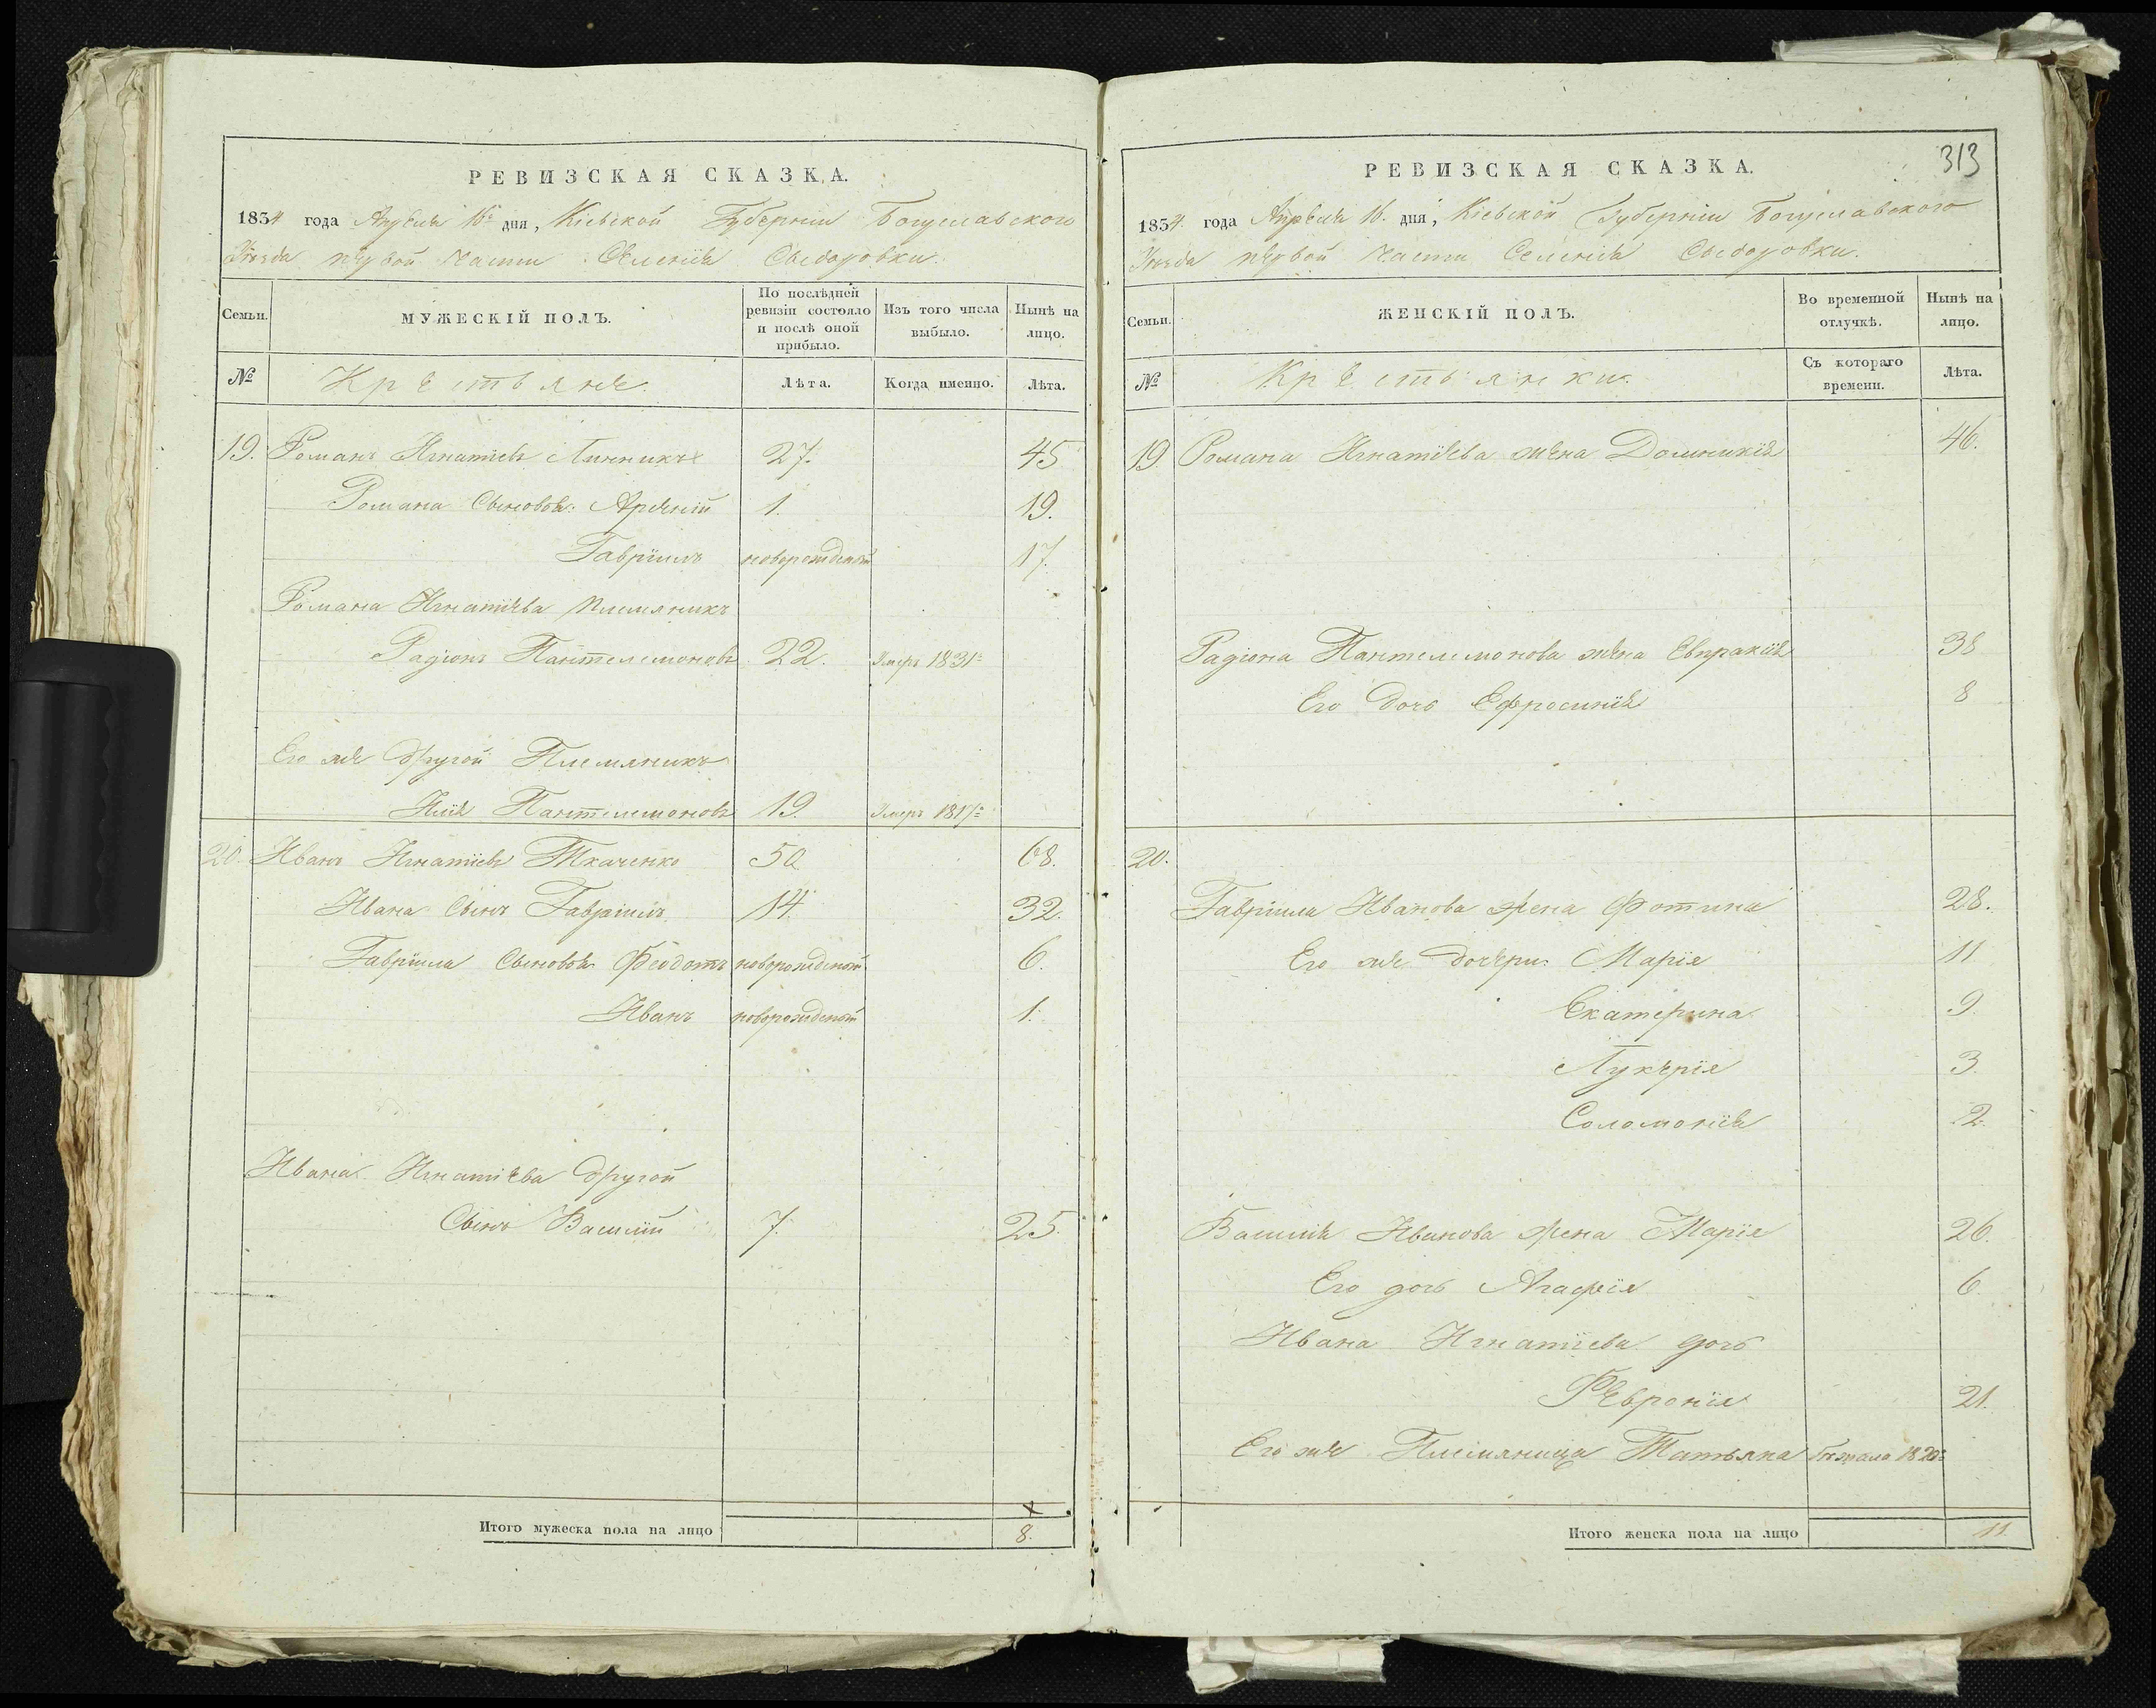 РЕВИЗСКАЯ СКАЗКА.
1834 года Апреля 16 дня, Кіевской Губерніи Богуславского
Уезда первой части Селенія
Семьи.
МУЖЕСКІЙ ПОЛЪ.
По послѣдней ревизіи состояло и послѣ оной прибыло.
Изъ того числа выбыло.
Нынѣ на лицо.
№
Крестьяне.
Лѣта.
Когда именно.
Лѣта.
19. Романъ Игнатіевъ Линникъ 27. 45
Романа Сыновья: Арсеній 1. 19.
Гавріилъ новорожденой 17.
Романа Игнатіева племяникъ
Радіонъ Пантелемоновъ 22. Умеръ 1831
Его же другой Племяникъ
Илія Пантелемоновъ 19. Умеръ 1817
20. Иванъ Игнатіевъ Ткаченко 50 68.
Ивана Сынъ Гавріилъ 14. 32.
Гавріила Сыновья Феодотъ новорожденой 6.
Иванъ новорожденой 1.
Ивана Игнатіева другой
Сынъ Василій 7. 25.
Итого мужеска пола на лицо 8.
313
РЕВИЗСКАЯ СКАЗКА.
1834 года Апреля 16. дня, Кіевской Губерніи Богуславского
Уезда первой части Селенія
Семьи.
ЖЕНСКІЙ ПОЛЪ.
Во временной отлучкѣ.
Нынѣ на лицо.
№
Крестьянки.
Съ котораго времени.
Лѣта.
19. Романа Игнатіева жена Домникія 46.
Радіона Пантелемонова жена Евпракія 38
Его дочь Ефросинія 8
20.
Гавріила Иванова жена Фотина 28.
Его же дочери: Марія 11
Екатерина 9.
Лукерія 3.
Соломонія 2.
Василія Иванова жена Марія 26.
Его дочь Агафія 6.
Ивана Игнатіева дочь
Февронія 21.
Его же Племяница Татьяна бежала 1820
Итого женска пола на лицо 11.